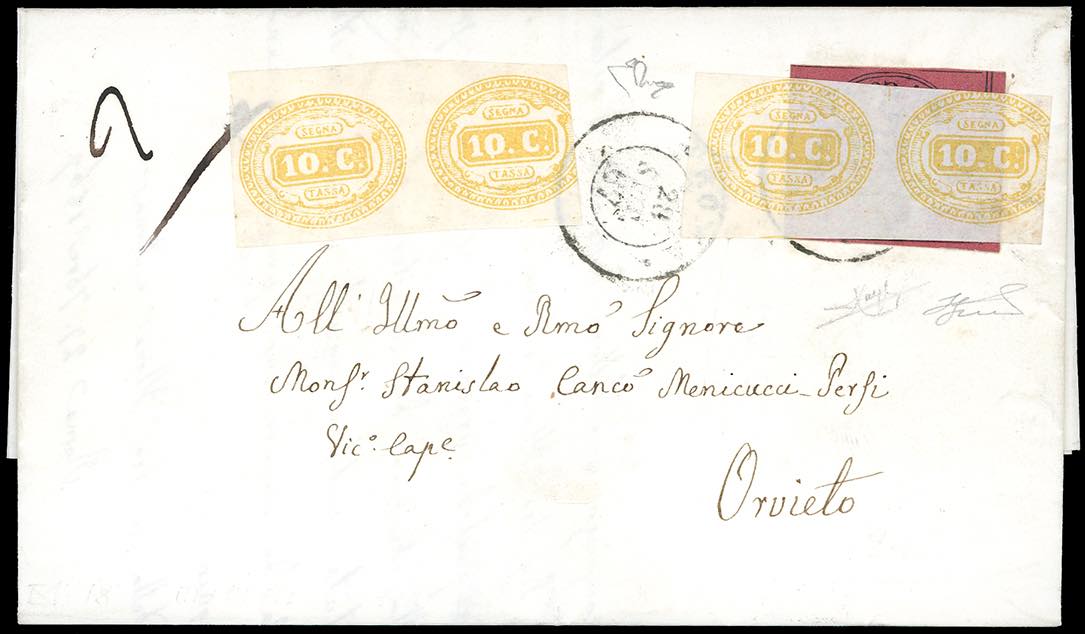 2
SEGNA
10. C.
TASSA
SEGNA
10. C.
TASSA
SEGNA
10. C.
TASSA
SEGNA
10. C.
TASSA
All' Illmo e Rmo Signore
Monsr. Stanislao Canco Menicucci-Persi
Vico. Cape.
Orvieto